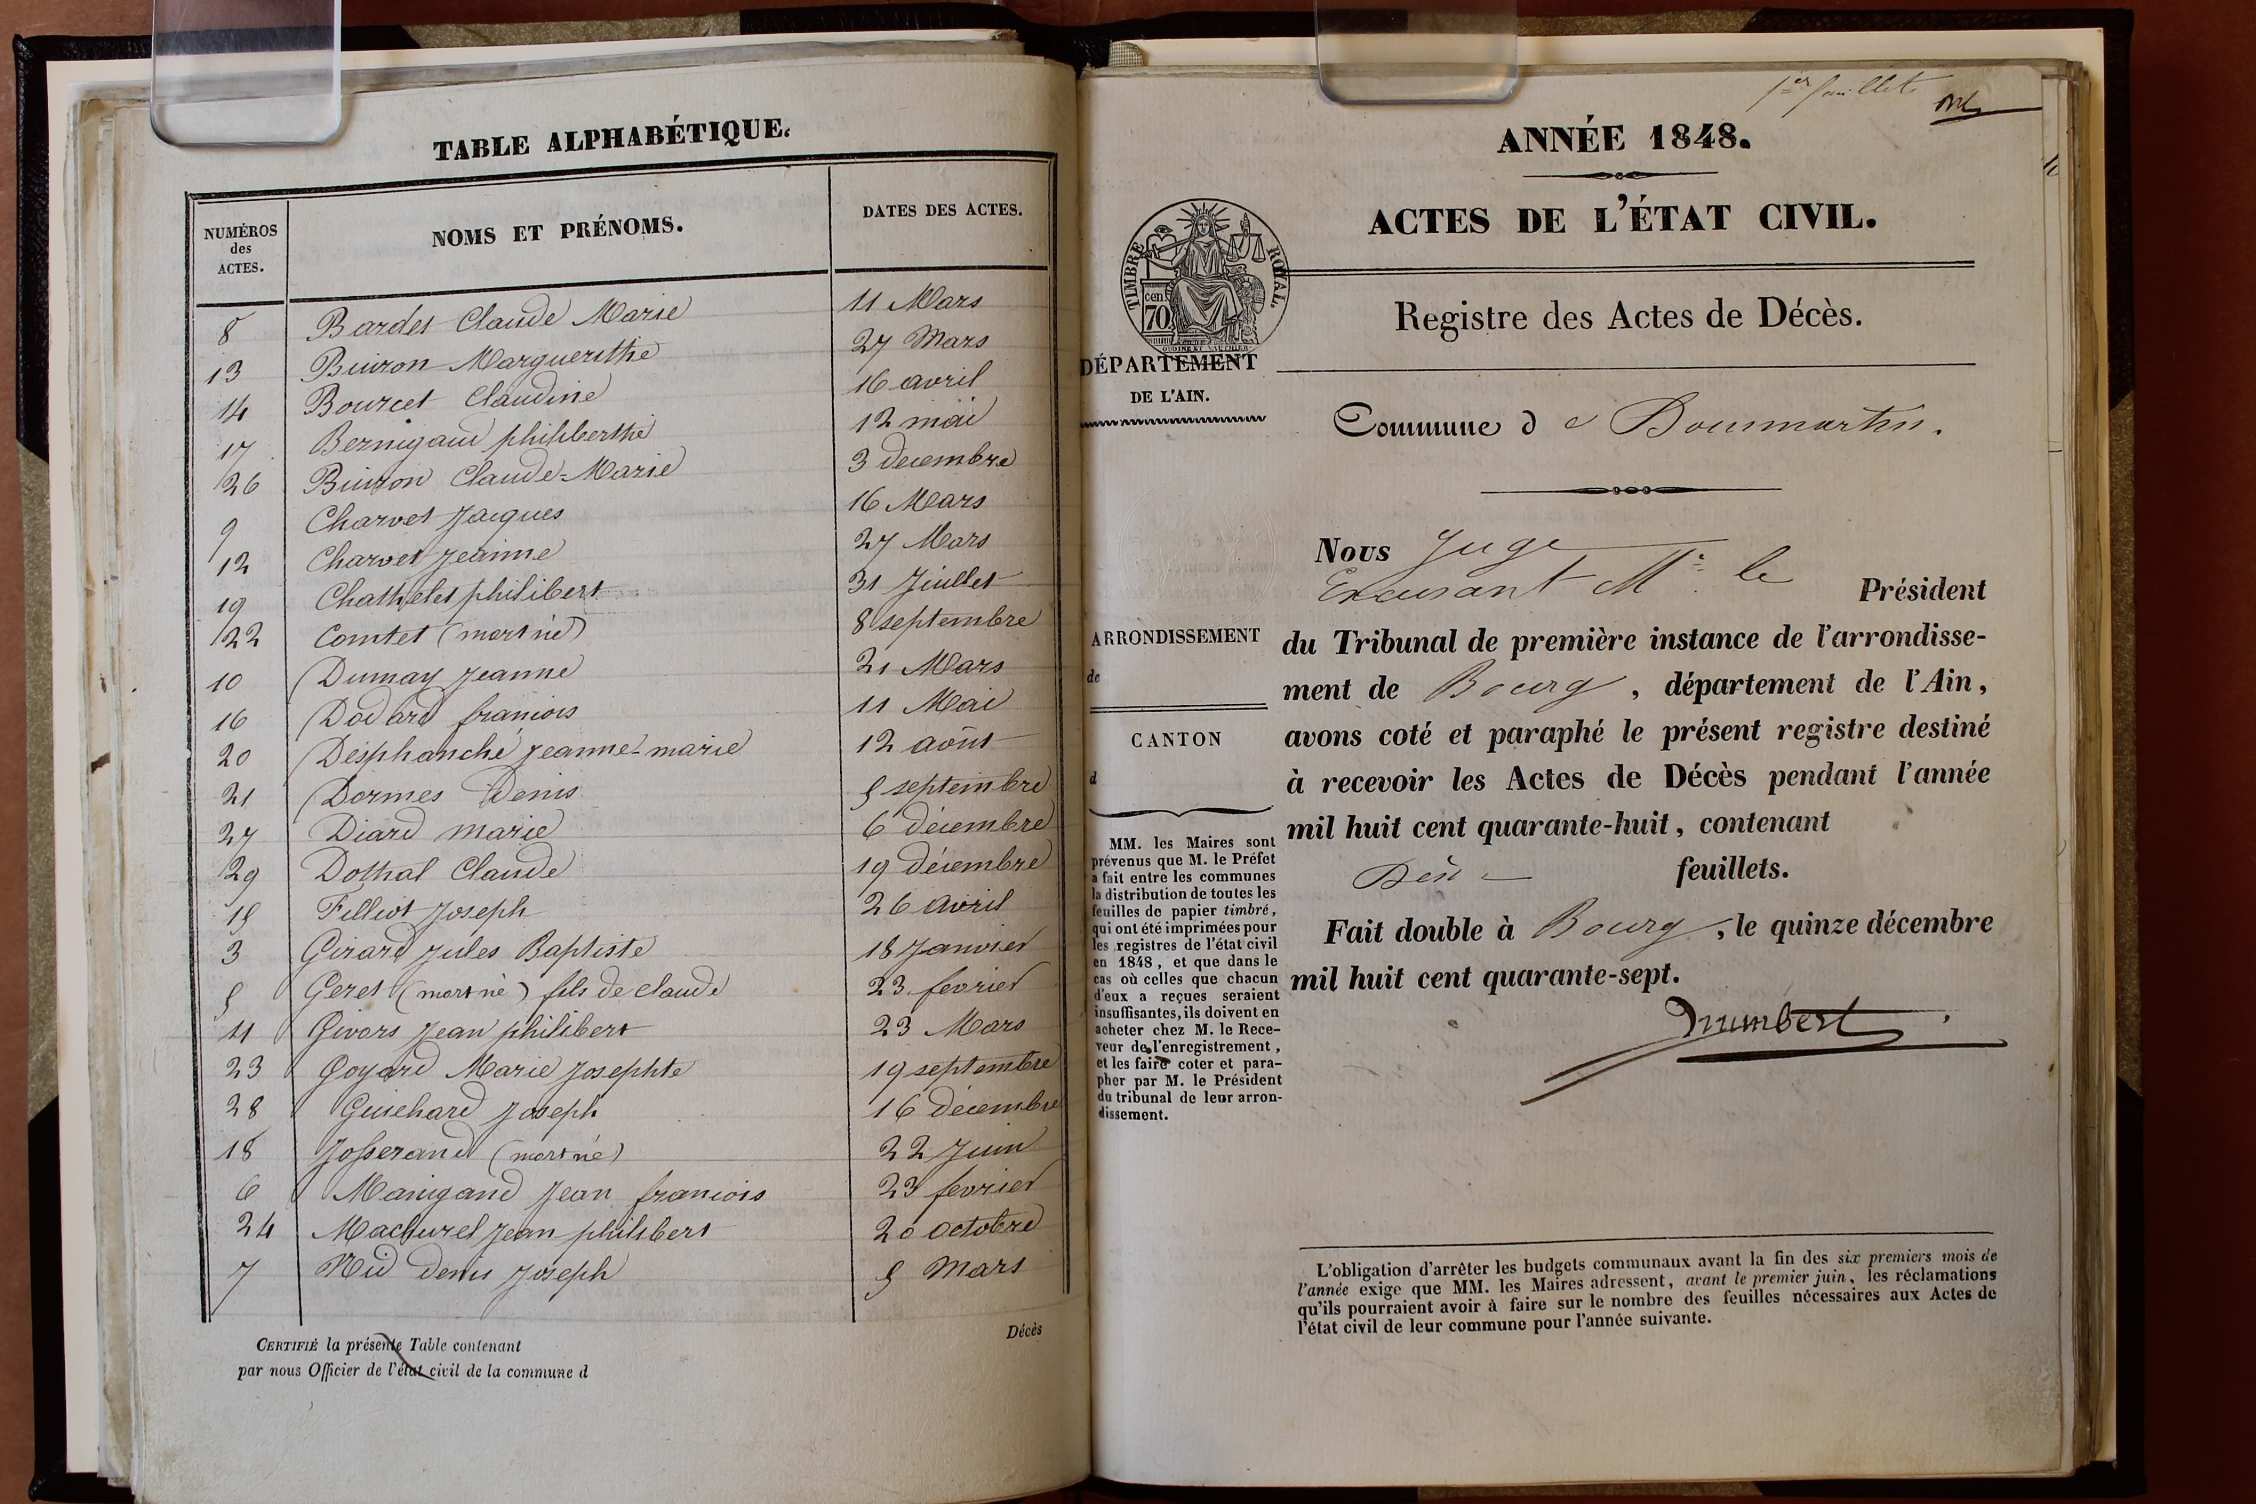 TABLE ALPHABÉTIQUE.
NUMÉROS des ACTES. NOMS ET PRÉNOMS. DATES DES ACTES.
8 Bardet Claude Marie 11 Mars
13 Buiron Marguerithe 27 Mars
14 Bourcet Claudine 16 avril
17 Bernigaud philiberthe 12 mai
26 Buiron Claude-Marie 3 decembre
9 Charvet Jacques 16 Mars
12 Charvet Jeanne 27 Mars
19 Chathelet philibert 31 Juillet
22 Comtet (mort né) 8 septembre
10 Dumay Jeanne 21 Mars
16 Dodard francois 11 Mai
20 Désphanché Jeanne-marie 12 août
21 Dormes Denis 5 septembre
27 Diard marie 6 décembre
29 Dothal Claude 19 décembre
15 Filliot Joseph 26 avril
3 Girard Jules Baptiste 18 Janvier
5 Geret (mort né) fils de claude 23 fevrier
11 Givors Jean philibert 23 Mars
23 Goyard Marie Josephte 19 septembre
28 Guichard Joseph 16 décembre
18 Josserand (mort né) 22 Juin
6 Manigand Jean francois 23 fevrier
24 Machurel Jean philibert 20 octobre
7 Nid denis Joseph 5 Mars
Décès
CERTIFIÉ la présente Table contenant
par nous Officier de l'état civil de la commune d
1er feuillet
ANNÉE 1848.
ACTES DE L'ÉTAT CIVIL.
TIMBRE ROYAL.
cen.
70
Registre des Actes de Décès.
DÉPARTEMENT
DE L'AIN.
Commune de Dommartin.
ARRONDISSEMENT
de
CANTON
d
MM. les Maires sont
prévenus que M. le Préfet
a fait entre les communes
la distribution de toutes les
feuilles de papier timbré,
qui ont été imprimées pour
les registres de l'état civil
en 1848, et que dans le
cas où celles que chacun
d'eux a reçues seraient
insuffisantes, ils doivent en
acheter chez M. le Rece-
veur de l'enregistrement,
et les faire coter et para-
pher par M. le Président
du tribunal de leur arron-
dissement.
Nous Juge
Excusant Mr. le Président
du Tribunal de première instance de l'arrondisse-
ment de Bourg, département de l'Ain,
avons coté et paraphé le présent registre destiné
à recevoir les Actes de Décès pendant l'année
mil huit cent quarante-huit, contenant
feuillets.
Fait double à Bourg, le quinze décembre
mil huit cent quarante-sept.
L'obligation d'arrêter les budgets communaux avant la fin des six premiers mois de
l'année exige que MM. les Maires adressent, avant le premier juin, les réclamations
qu'ils pourraient avoir à faire sur le nombre des feuilles nécessaires aux Actes de
l'état civil de leur commune pour l'année suivante.